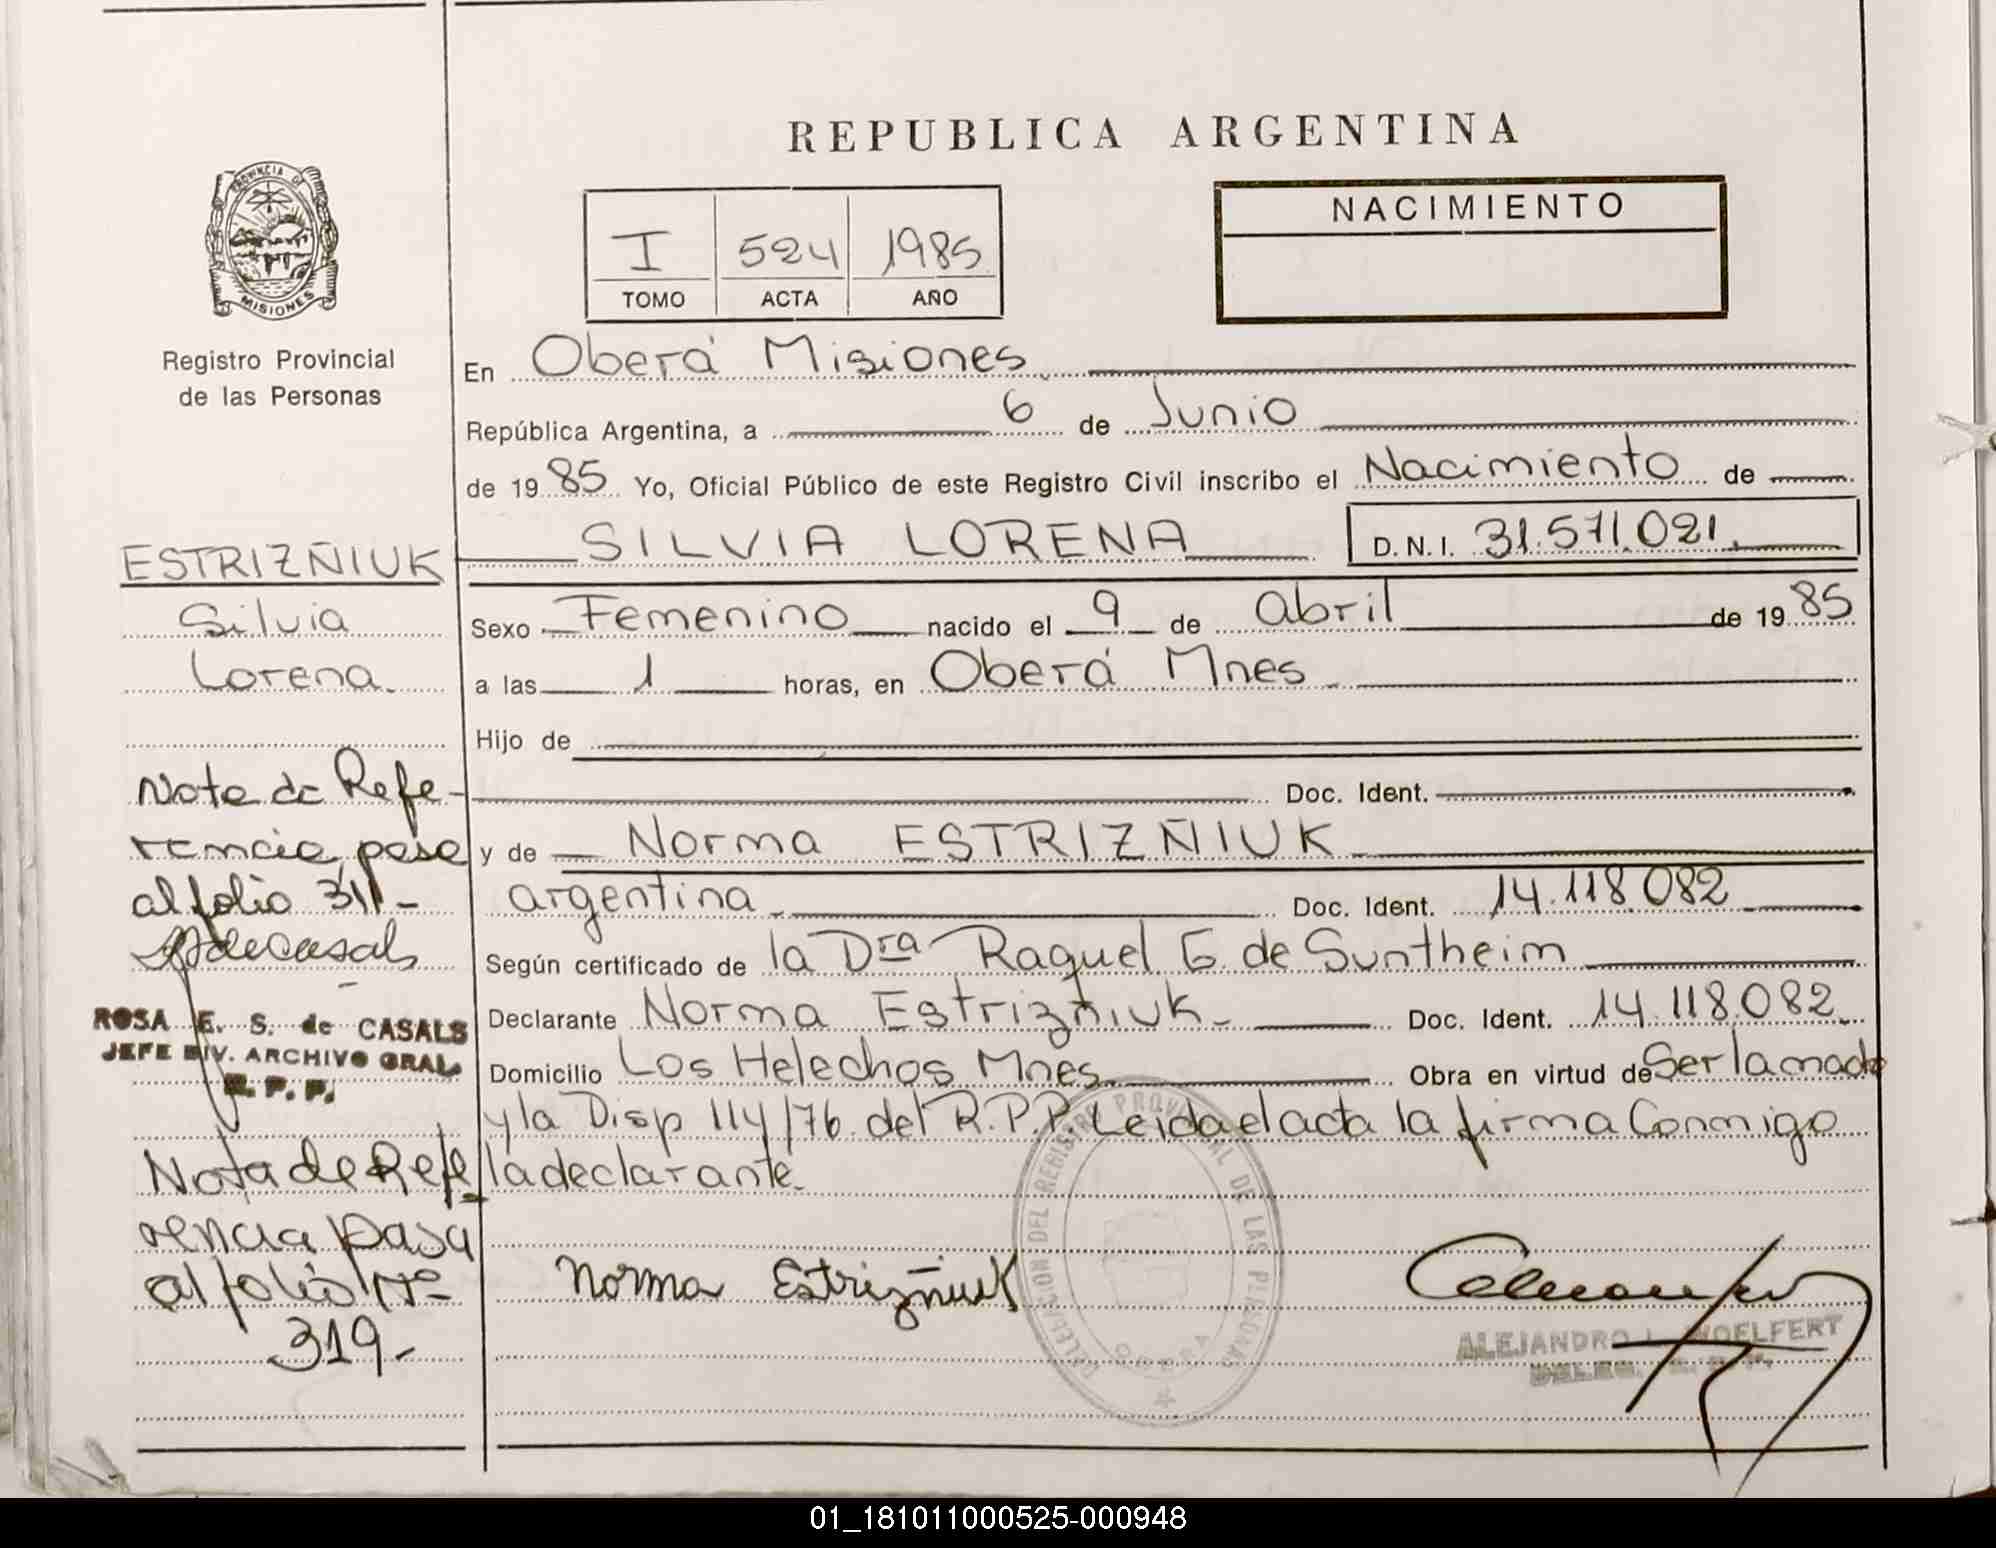 REPUBLICA ARGENTINA
PROVINCIA DE
MISIONES
Registro Provincial
de las Personas
I 524 1985
TOMO ACTA AÑO
NACIMIENTO
En Oberá Misiones
República Argentina, a 6 de Junio
de 1985 Yo, Oficial Público de este Registro Civil inscribo el Nacimiento de
SILVIA LORENA D.N.I. 31.571.021.
Sexo Femenino nacido el 9 de abril de 1985
a las 1 horas, en Oberá Mnes
Hijo de
Doc. Ident.
y de Norma ESTRIZÑIUK
argentina Doc. Ident. 14.118.082
Según certificado de la Dra Raquel G. de Suntheim
Declarante Norma Estrizñiuk Doc. Ident. 14.118.082
Domicilio Los Helechos Mnes. Obra en virtud de Ser la madre
y la Disp 114/76 del R.P.P. Leida el acta la firma Conmigo
la declarante.
Norma Estrizñiuk
DELEGACION DEL REGISTRO PROVINCIAL DE LAS PERSONAS
OBERA
ALEJANDRO L. WOELFERT
DELEG. R. P. P.
ESTRIZÑIUK
Silvia
Lorena.
Nota de Refe-
rencia pasa
al folio 311-
ROSA E. S. de CASALS
JEFE DIV. ARCHIVO GRAL.
R. P. P.
Nota de Refe
rencia pasa
al folio Nº
319-
01_181011000525-000948